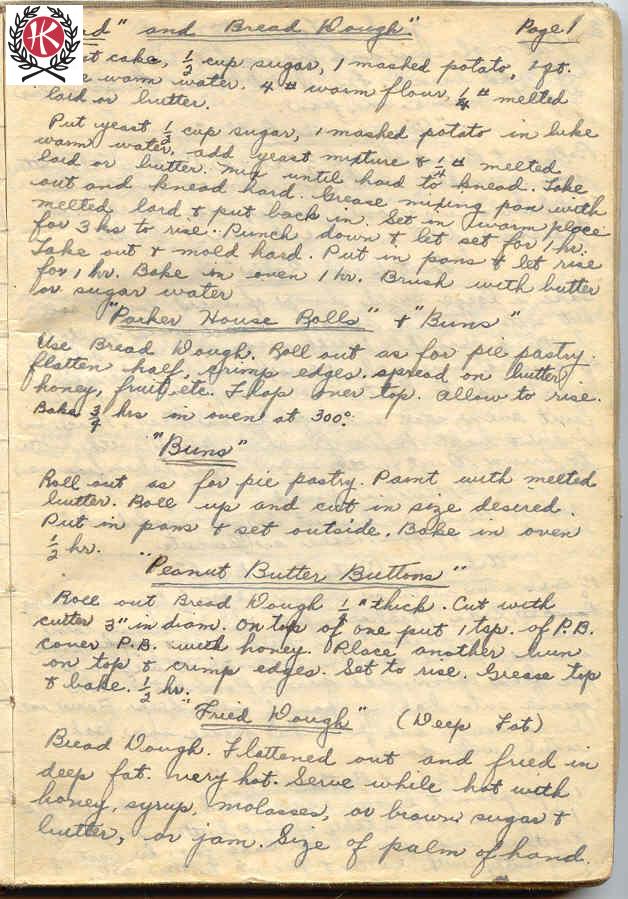 HK
" and Bread Dough." Page 1
cake, 1/2 cup sugar, 1 mashed potato, 1 qt.
warm water. 4 # warm flour, 1/4 # melted
lard or butter.
Put yeast 1/3 cup sugar, 1 mashed potato in luke
warm water, add yeast mixture & 1/4 # melted
lard or butter. Mix until hard to knead. Take
out and knead hard. Grease mixing pan with
melted lard & put back in. Set in warm place
for 3 hs to rise. Punch down & let set for 1 hr.
Take out & mold hard. Put in pans & let rise
for 1 hr. Bake in oven 1 hr. Brush with butter
or sugar water
"Parker House Rolls" & "Buns"
Use Bread Dough. Roll out as for pie pastry.
flatten half, crimp edges. spread on butter,
honey, fruit, etc. Flop over top. allow to rise.
Bake 3/4 hrs in oven at 300°.
"Buns"
Roll out as for pie pastry. Paint with melted
butter. Roll up and cut in size desired.
Put in pans & set outside. Bake in oven
1/2 hr.
"Peanut Butter Buttons"
Roll out Bread Dough 1/8" thick. Cut with
cutter 3" in diam. On top of one put 1 tsp. of P.B.
cover P.B. with honey. Place another bun
on top & crimp edges. Set to rise. Grease top
& bake. 1/2 hr.
"Fried Dough" (Deep Fat)
Bread Dough. Flattened out and fried in
deep fat. very hot. Serve while hot with
honey, syrup, molasses, or brown sugar &
butter, or jam. Size of palm of hand.